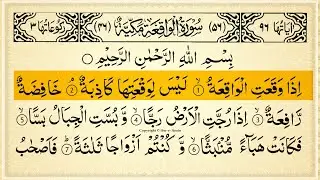 اٰيَاتُهَا ٩٦ (٥٦) سُوْرَةُ الْوَاقِعَةِ مَكِّيَّةٌ (٤٦) رُكُوْعَاتُهَا ٣
بِسْمِ اللّٰهِ الرَّحْمٰنِ الرَّحِيْمِ
اِذَا وَقَعَتِ الْوَاقِعَةُ ۙ﴿١﴾ لَيْسَ لِوَقْعَتِهَا كَاذِبَةٌ ۘ﴿٢﴾ خَافِضَةٌ
رَّافِعَةٌ ۙ﴿٣﴾ اِذَا رُجَّتِ الْاَرْضُ رَجًّا ۙ﴿٤﴾ وَّ بُسَّتِ الْجِبَالُ بَسًّا ۙ﴿٥﴾
فَكَانَتْ هَبَآءً مُّنْۢبَثًّا ۙ﴿٦﴾ وَّ كُنْتُمْ اَزْوَاجًا ثَلٰثَةً ؕ﴿٧﴾ فَاَصْحٰبُ